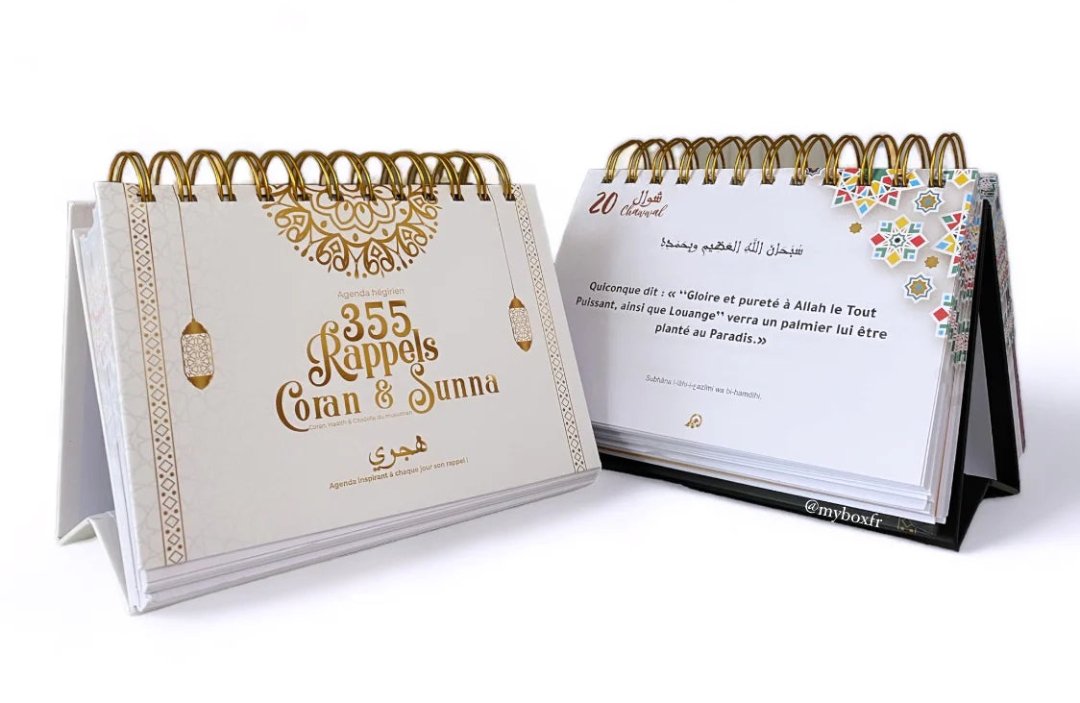 Agenda hégirien
355
Rappels
Coran & Sunna
Coran, Hadith & Citadelle du musulman
هجري
Agenda inspirant à chaque jour son rappel !
20 شوال
Chawwal
سُبْحَانَ اللَّهِ الْعَظِيمِ وَبِحَمْدِهِ
Quiconque dit : « “Gloire et pureté à Allah le Tout
Puissant, ainsi que Louange” verra un palmier lui être
planté au Paradis.»
Subhâna l-lâhi-l-ʿazîmi wa bi-hamdihi.
@myboxfr